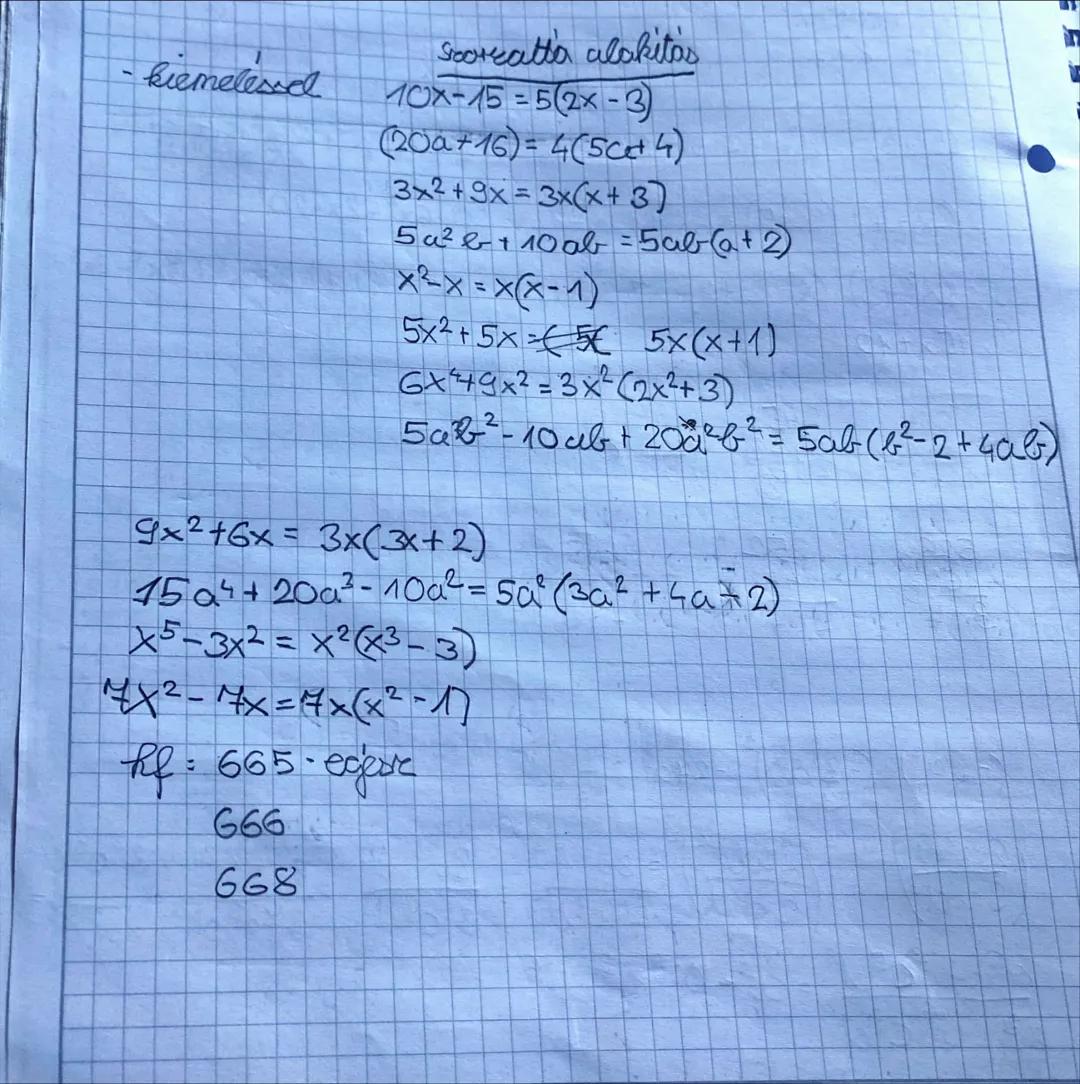 szorzattá alakítás
- kiemeléssel 10x-15 = 5(2x-3)
(20a+16) = 4(5a+4)
3x²+9x = 3x(x+3)
5a²b+10ab = 5ab(a+2)
x²-x = x(x-1)
5x²+5x = 5x(x+1)
6x⁴+9x² = 3x²(2x²+3)
5ab²-10ab+20a²b² = 5ab(b²-2+4ab)
9x²+6x = 3x(3x+2)
15a⁴+20a³-10a² = 5a²(3a²+4a-2)
x⁵-3x² = x²(x³-3)
7x²-7x = 7x(x²-1)
hf: 665 - egész
666
668